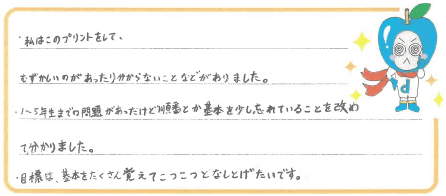 ・私はこのプリントをして、
むずかしいのがあったり分からないことなどがありました。
・1～5年生までの問題があったけど順番とか基本を少し忘れていることを改め
て分かりました。
・目標は、基本をたくさん覚えてこつこつとなしとげたいです。
d